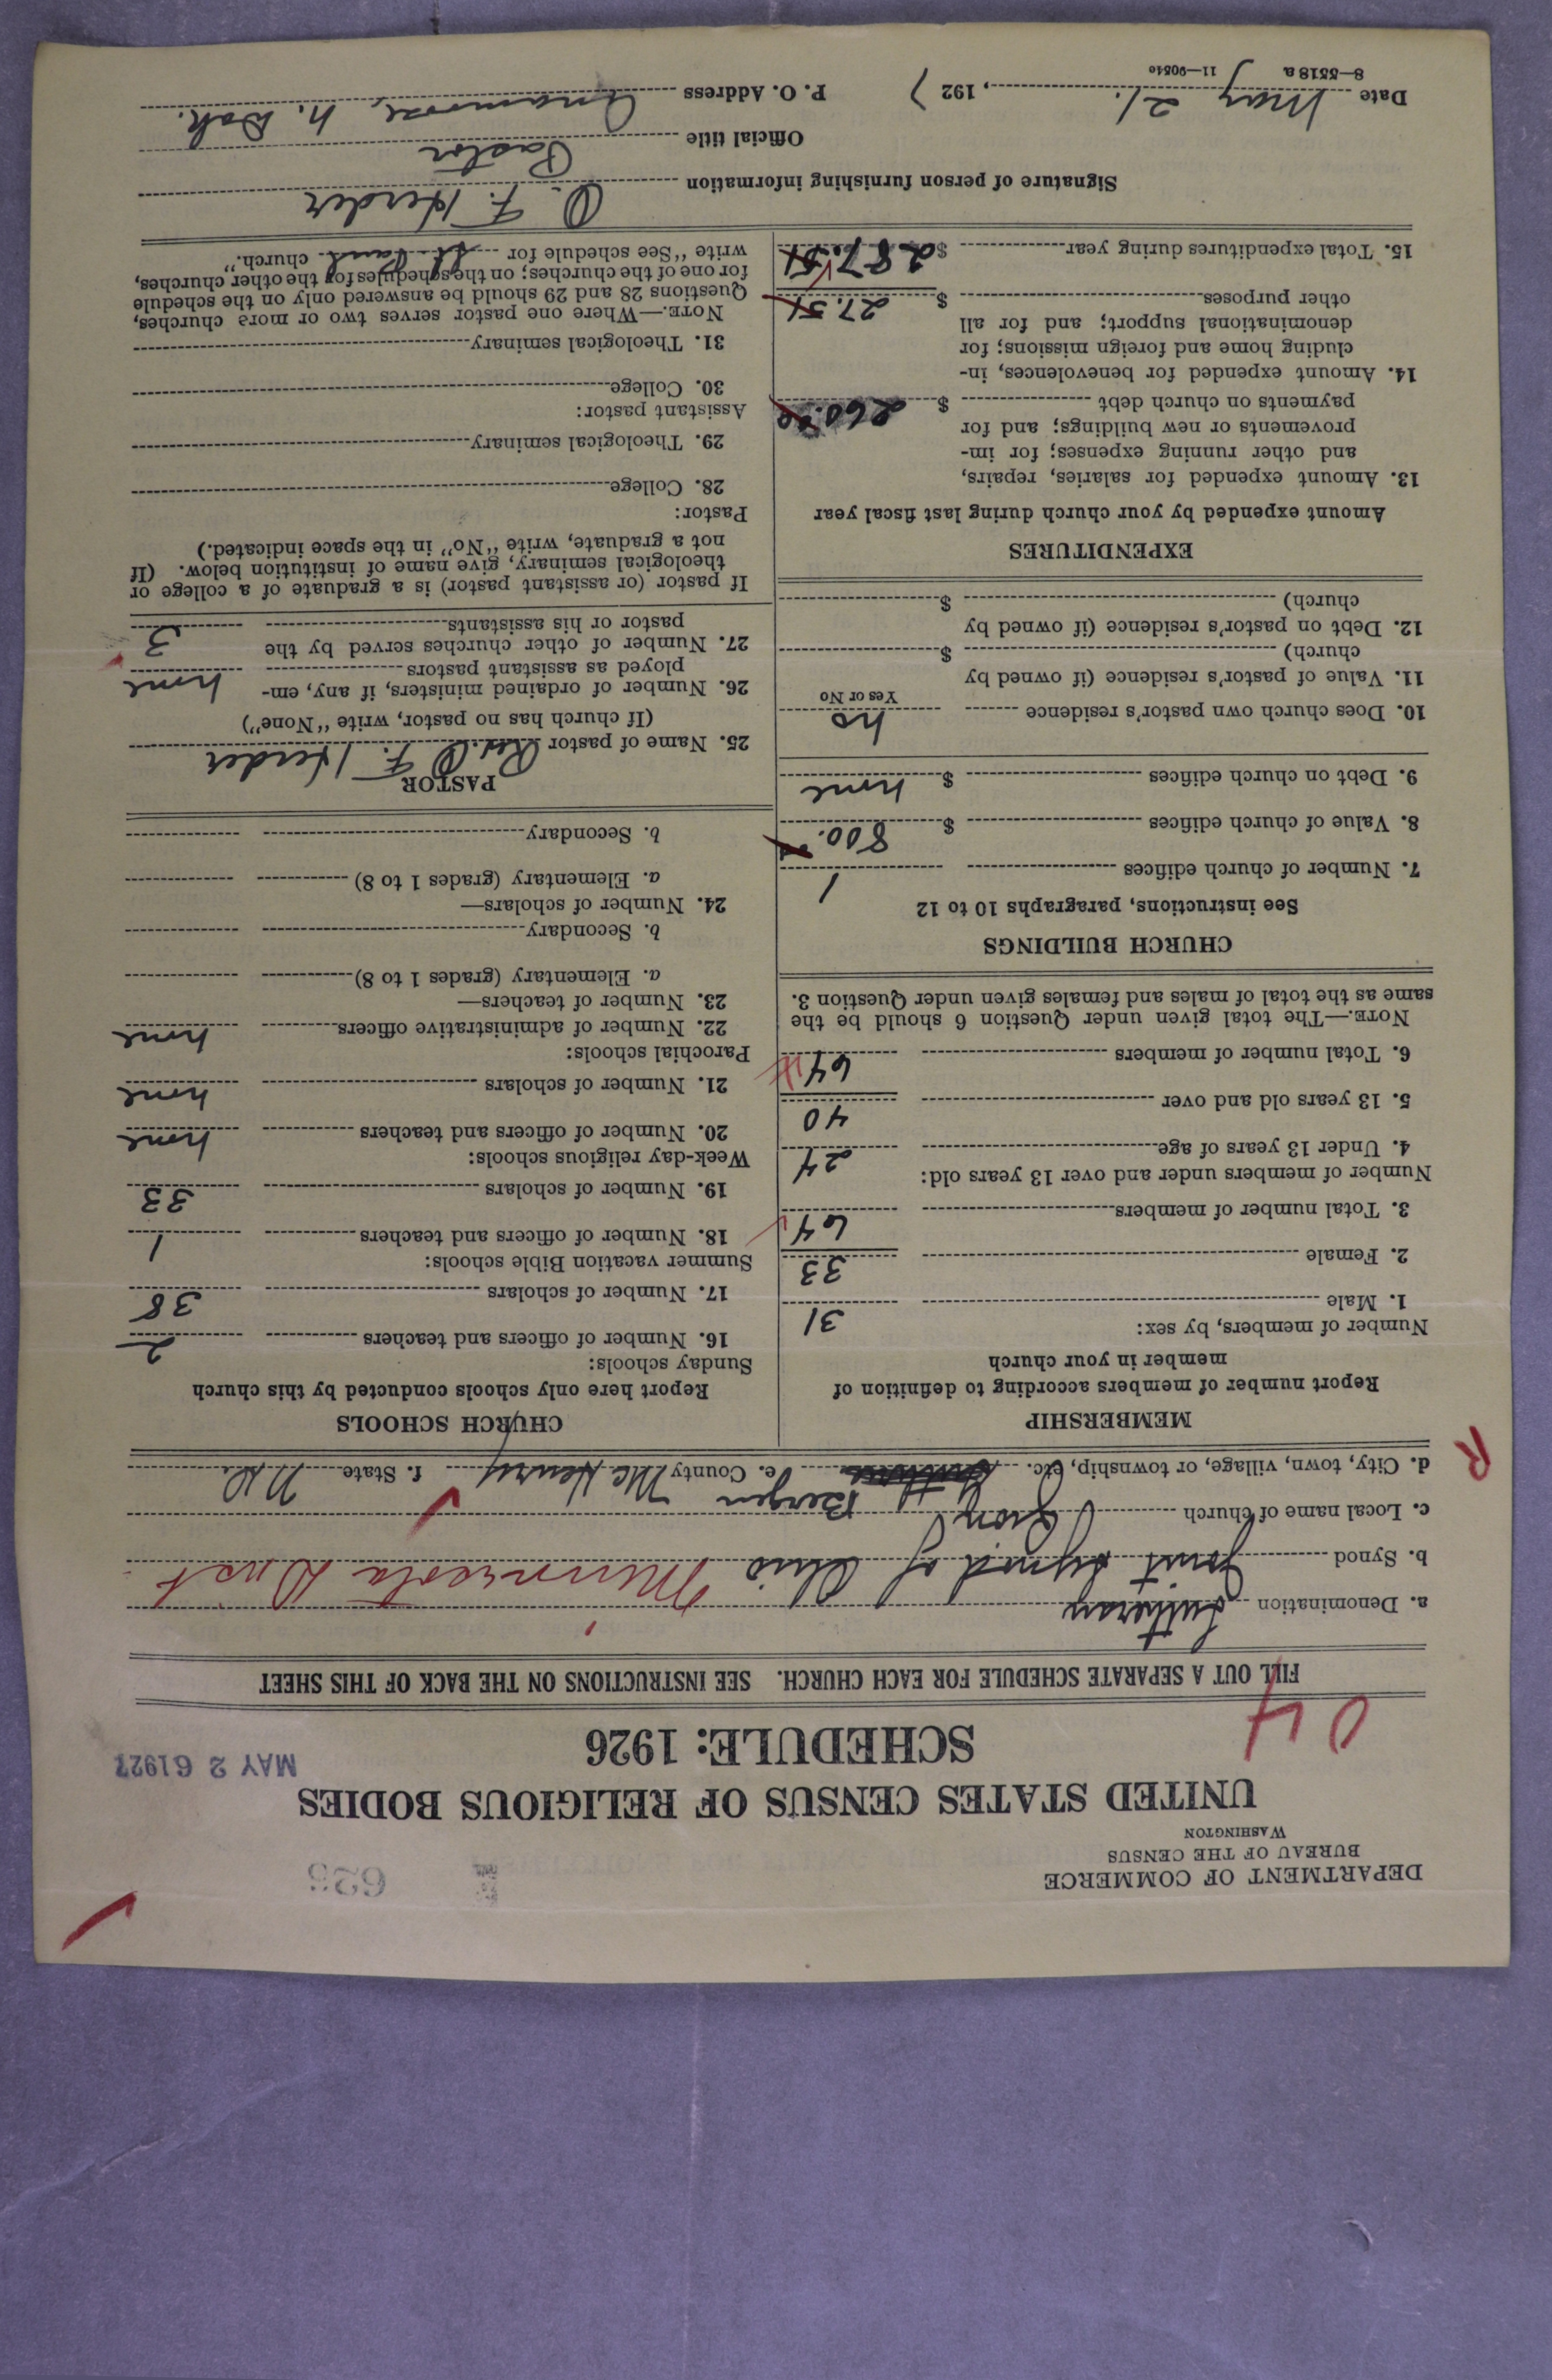 DEPARTMENT OF COMMERCE
BUREAU OF THE CENSUS
WASHINGTON
625
UNITED STATES CENSUS OF RELIGIOUS BODIES
SCHEDULE: 1926
MAY 26 1927
04
FILL OUT A SEPARATE SCHEDULE FOR EACH CHURCH. SEE INSTRUCTIONS ON THE BACK OF THIS SHEET
a. Denomination Lutheran
b. Synod Joint Synod of Ohio Minnesota Dist
c. Local name of church Zion
R
d. City, town, village, or township, etc. Bergen e. County McHenry f. State N.D.
MEMBERSHIP
Report number of members according to definition of
member in your church
Number of members, by sex:
1. Male 31
2. Female 33
3. Total number of members 64
Number of members under and over 13 years old:
4. Under 13 years of age 24
5. 13 years old and over 40
6. Total number of members 64
NOTE.—The total given under Question 6 should be the
same as the total of males and females given under Question 3.
CHURCH BUILDINGS
See instructions, paragraphs 10 to 12
7. Number of church edifices 1
8. Value of church edifices $ 800.
9. Debt on church edifices $ none
10. Does church own pastor's residence no
Yes or No
11. Value of pastor's residence (if owned by
church) $
12. Debt on pastor's residence (if owned by
church) $
EXPENDITURES
Amount expended by your church during last fiscal year
13. Amount expended for salaries, repairs,
and other running expenses; for im-
provements or new buildings; and for
payments on church debt $ 260.
14. Amount expended for benevolences, in-
cluding home and foreign missions; for
denominational support; and for all
other purposes $ 27.51
15. Total expenditures during year $ 287.51
CHURCH SCHOOLS
Report here only schools conducted by this church
Sunday schools:
16. Number of officers and teachers 2
17. Number of scholars 38
Summer vacation Bible schools:
18. Number of officers and teachers 1
19. Number of scholars 33
Week-day religious schools:
20. Number of officers and teachers none
21. Number of scholars none
Parochial schools:
22. Number of administrative officers none
23. Number of teachers—
a. Elementary (grades 1 to 8)
b. Secondary
24. Number of scholars—
a. Elementary (grades 1 to 8)
b. Secondary
PASTOR
25. Name of pastor Rev. O. F. Herder
(If church has no pastor, write "None")
26. Number of ordained ministers, if any, em-
ployed as assistant pastors none
27. Number of other churches served by the
pastor or his assistants 3
If pastor (or assistant pastor) is a graduate of a college or
theological seminary, give name of institution below. (If
not a graduate, write "No" in the space indicated.)
Pastor:
28. College
29. Theological seminary
Assistant pastor:
30. College
31. Theological seminary
NOTE.—Where one pastor serves two or more churches,
Questions 28 and 29 should be answered only on the schedule
for one of the churches; on the schedules for the other churches,
write "See schedule for St. Paul church."
Signature of person furnishing information O. F. Herder
Official title Pastor
Date May 21., 1927 P. O. Address Anamoose, N. Dak.
8—5518 a 11—9054c